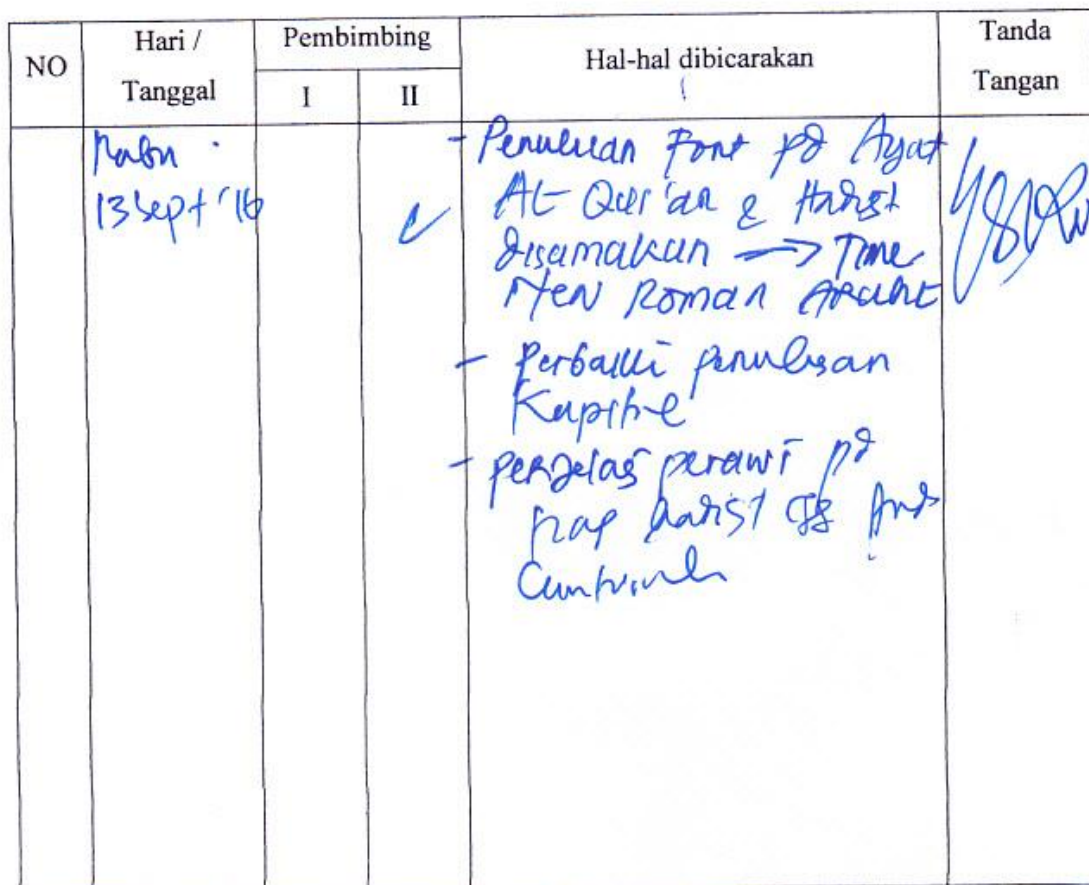 NO
Hari /
Tanggal
Pembimbing
I
II
Hal-hal dibicarakan
Tanda
Tangan
Rabu
13 Sept '16
- Penulisan Font pd Ayat
Al-Qur'an & Hadist
disamakan → Time
New Roman Arabic
- Perbaiki penulisan
Kapital
- perjelas perawi pd
tiap hadist yg Anda
Cantumkan